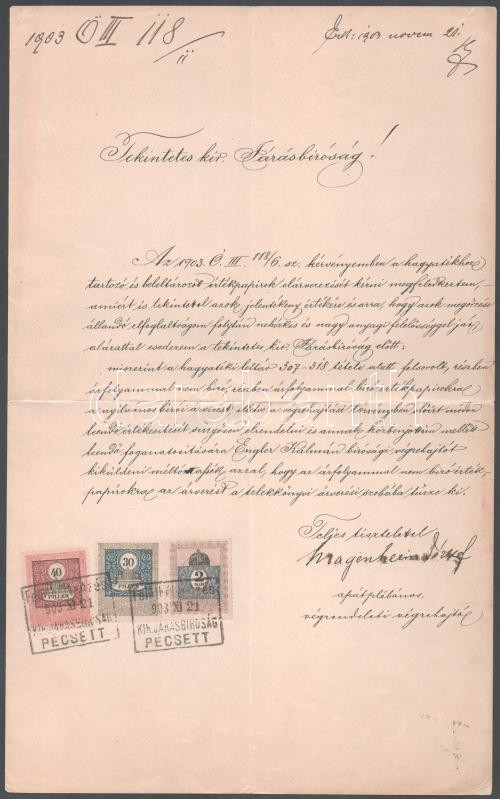 1903 Ö III 118/ii
Érk: 1903 novem 21.
Tekintetes kir. Járásbíróság!
Az 1903. Ö. III. 118/6. sz. kérvényemben a hagyatékhoz
tartozó és beleltározott értékpapirok elárverezését kérni megfeledkeztem,
amiért és tekintettel azok jelentékeny értékére és arra, hogy azok megőrzése
állandó elfoglaltságom folytán nehézkes és nagy anyagi felelősséggel jár
alázattal esedezem a tekintetes kir. Járásbíróság előtt:
miszerint a hagyatéki leltár 307-318 tételei alatt felsorolt, részben
árfolyammal nem biró, részben árfolyammal biró értékpapirokra
a nyilvános birói árverést, illetve a végrehajtási törvényben előirt módon
leendő értékesitését sürgősen elrendelni és annak közbenjöttöm mellett
leendő foganatositására Engler Kálmán birósági végrehajtót
kiküldeni méltóztassék azzal, hogy az árfolyammal nem biró érték-
papirokra az árverést a telekkönyvi árverési szobába tüzze ki.
Teljes tisztelettel
Magenheim József
apátplébános,
végrendeleti végrehajtó.
40
FILLÉR
30
FILLÉR
2
903 XI 21
KIR. JÁRÁSBIRÓSÁG
PECSETT
903 XI 21
KIR. JÁRÁSBIRÓSÁG
PECSETT